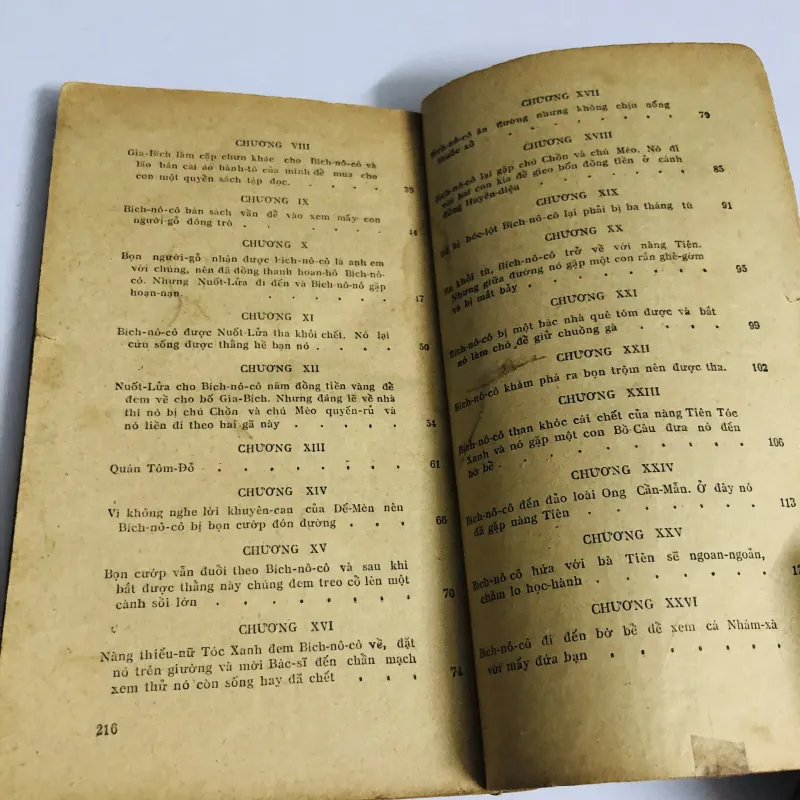 CHƯƠNG VIII
Gia-Bích làm cặp chưn khác cho Bích-nô-cô và
lão bán cái áo bành-tô của mình để mua cho
con một quyển sách tập đọc. . . . . 39
CHƯƠNG IX
Bích-nô-cô bán sách vần để vào xem mấy con
người-gỗ đóng trò . . . . . . . 44
CHƯƠNG X
Bọn người-gỗ nhận được Bích-nô-cô là anh em
với chúng, nên đã đồng thanh hoan-hô Bích-nô-
cô. Nhưng Nuốt-Lửa đi đến và Bích-nô-nô gặp
hoạn-nạn. . . . . . . 47
CHƯƠNG XI
Bích-nô-cô được Nuốt-Lửa tha khỏi chết. Nó lại
cứu sống được thằng hề bạn nó . . . . 50
CHƯƠNG XII
Nuốt-Lửa cho Bích-nô-cô năm đồng tiền vàng để
đem về cho bố Gia-Bích. Nhưng đáng lẽ về nhà
thì nó bị chú Chồn và chú Mèo quyến-rủ và
nó liền đi theo hai gã này . . . . . 54
CHƯƠNG XIII
Quán Tôm-Đỏ . . . . . . . 61
CHƯƠNG XIV
Vì không nghe lời khuyên-can của Dế-Mèn nên
Bích-nô-cô bị bọn cướp đón đường . . . 66
CHƯƠNG XV
Bọn cướp vẫn đuổi theo Bích-nô-cô và sau khi
bắt được thằng này chúng đem treo cổ lên một
cành sồi lớn . . . . . . . 70
CHƯƠNG XVI
Nàng thiếu-nữ Tóc Xanh đem Bích-nô-cô về, đặt
nó trên giường và mời Bác-sĩ đến chẩn mạch
xem thử nó còn sống hay đã chết . . . 74
216
CHƯƠNG XVII
Bích-nô-cô ăn đường nhưng không chịa uống
thuốc xổ . . . . . . . 79
CHƯƠNG XVIII
Bích-nô-cô lại gặp chú Chồn và chú Mèo. Nó đi
với hai con kia để gieo bốn đồng tiền ở cánh
đồng Huyền-diệu . . . . . . 85
CHƯƠNG XIX
bị bóc-lột Bích-nô-cô lại phải bị ba tháng tù 91
CHƯƠNG XX
Ra khỏi tù, Bích-nô-cô trở về với nàng Tiên.
Nhưng giữa đường nó gặp một con rắn ghê-gớm
và bị mắt bẫy . . . . . . . 95
CHƯƠNG XXI
Bích-nô-cô bị một bác nhà quê tóm được và bắt
nó làm chó để giữ chuồng gà . . . . 99
CHƯƠNG XXII
Bích-nô-cô khám phá ra bọn trộm nên được tha. 102
CHƯƠNG XXIII
Bích-nô-cô than khóc cái chết của nàng Tiên Tóc
Xanh và nó gặp một con Bồ-Câu đưa nó đến
bờ bể . . . . . . . . 106
CHƯƠNG XXIV
Bích-nô-cô đến đảo loài Ong Cần-Mẫn. Ở đây nó
đã gặp nàng Tiên . . . . . . 113
CHƯƠNG XXV
Bích-nô-cô hứa với bà Tiên sẽ ngoan-ngoản,
chăm lo học-hành . . . . . .
CHƯƠNG XXVI
Bích-nô-cô đi đến bờ bể để xem cá Nhám-xà
với mấy đứa bạn . . . . . .